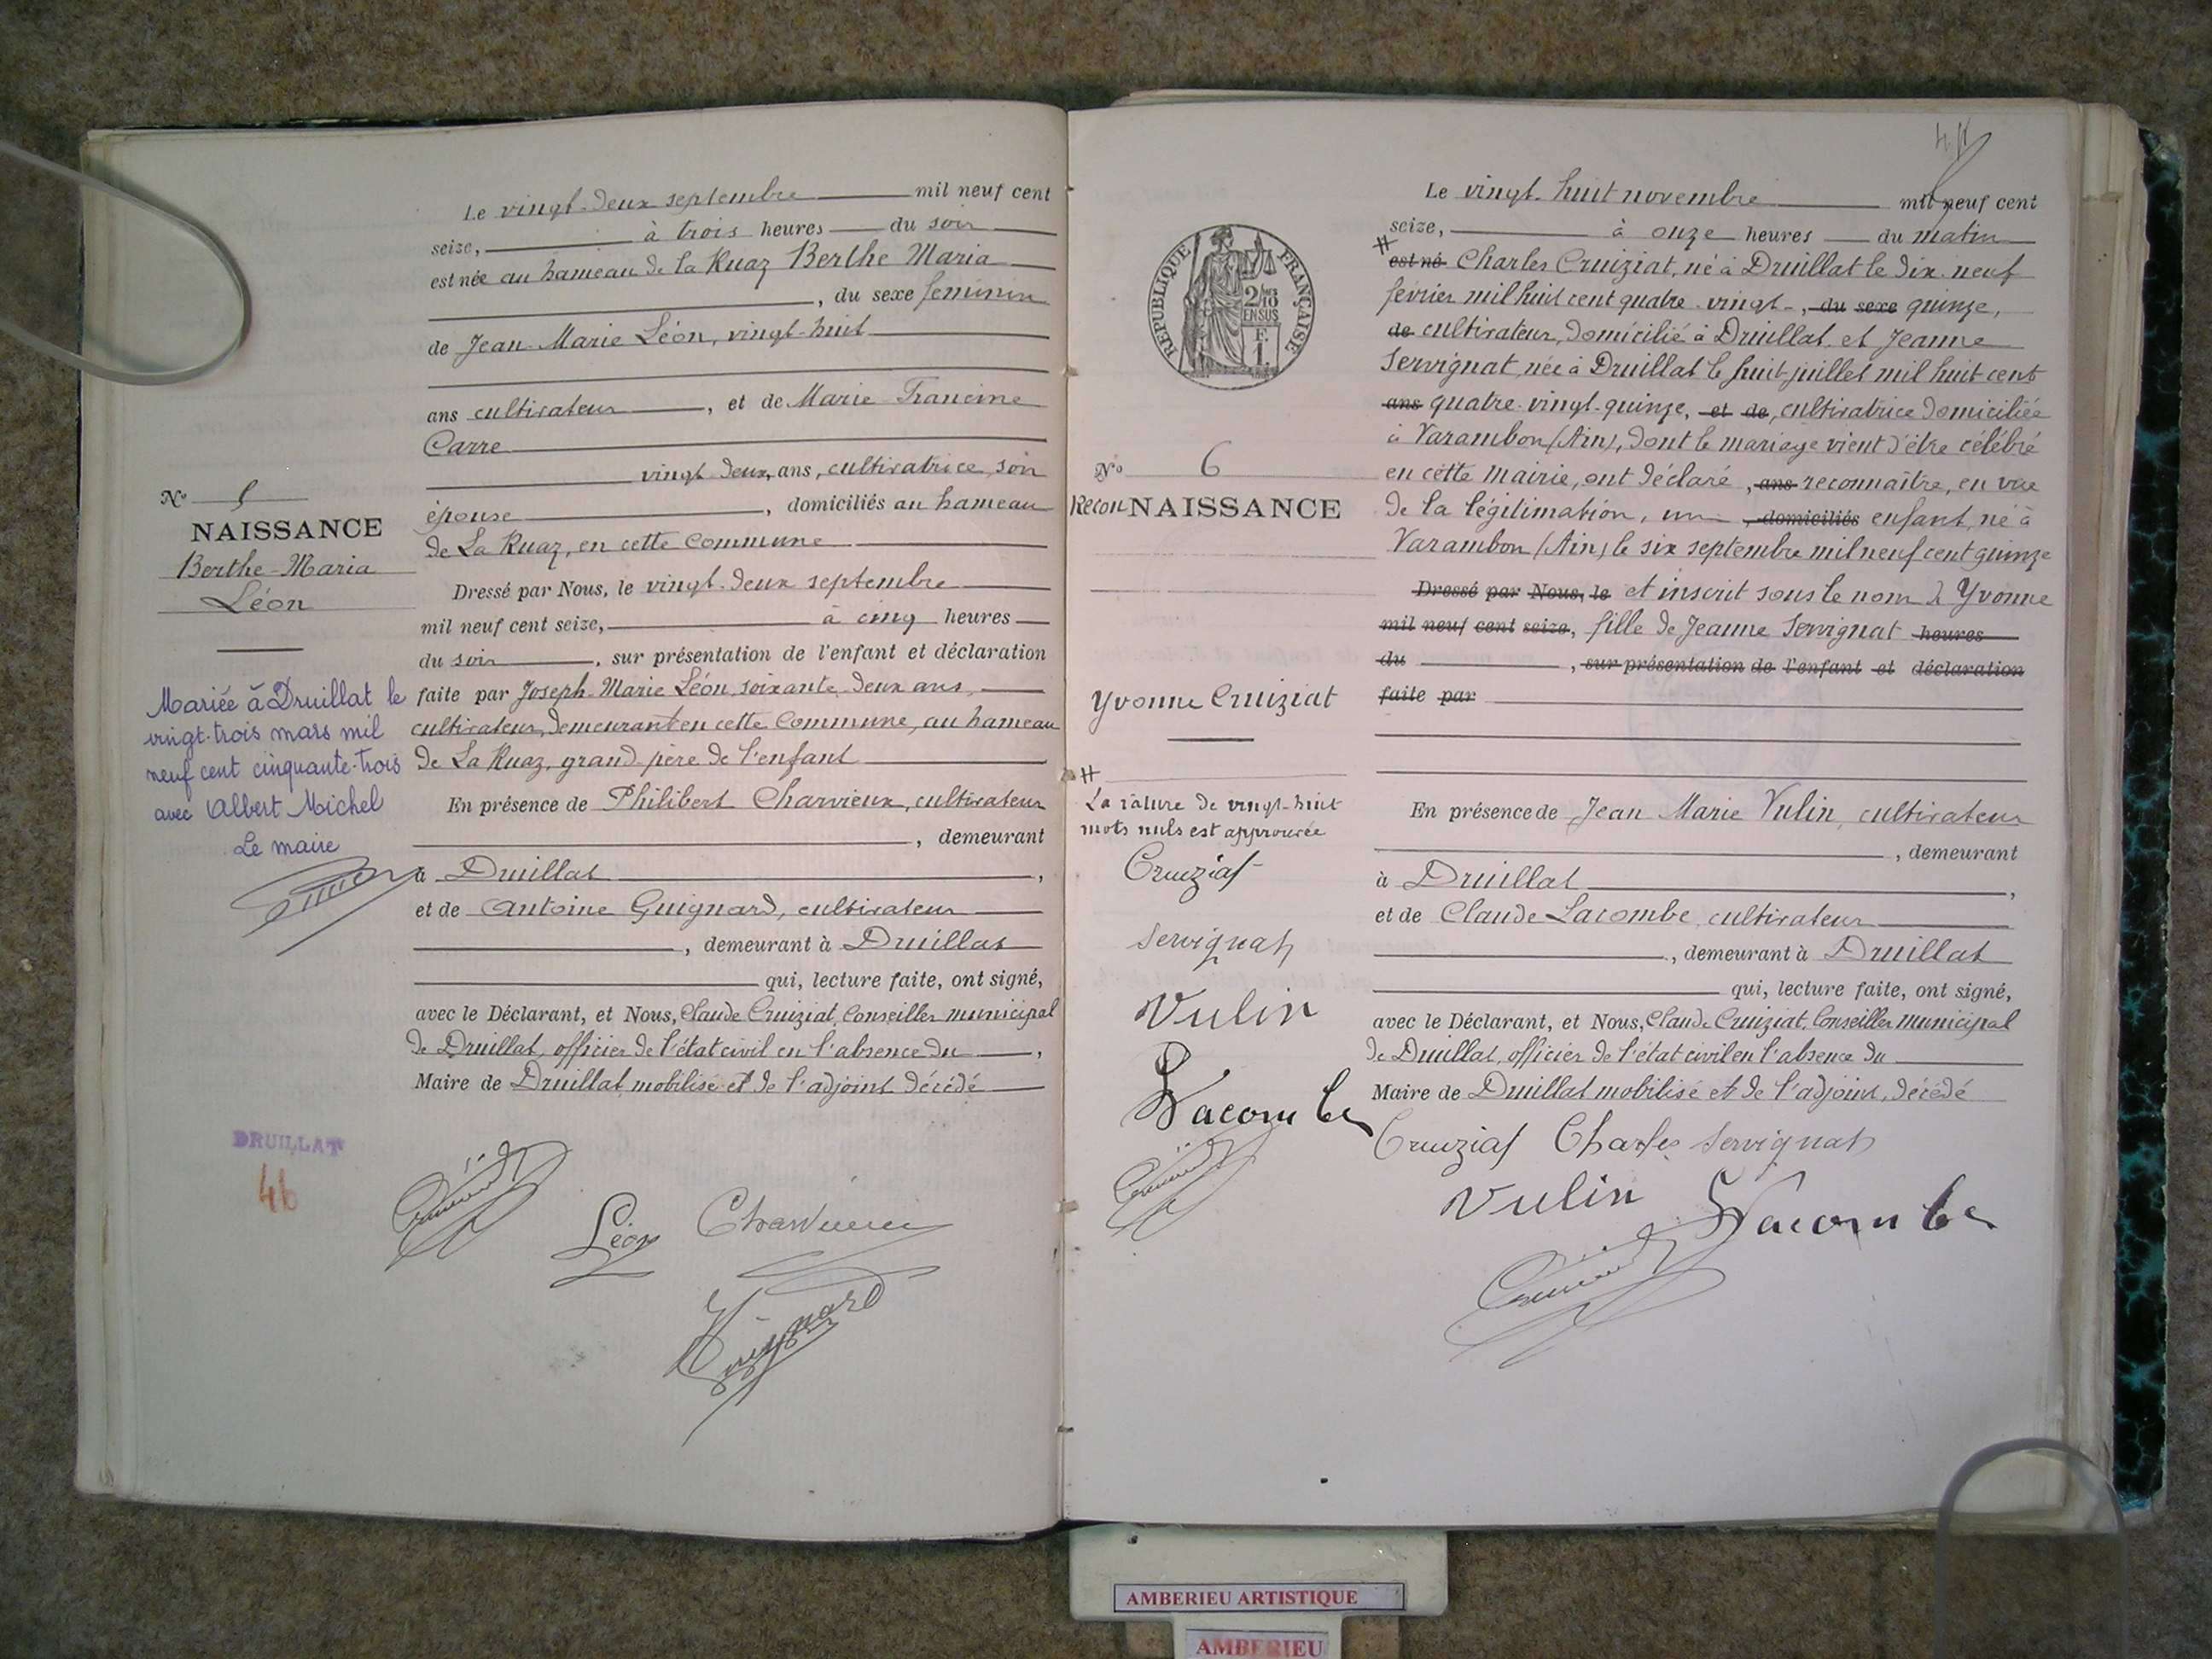 Le vingt-deux septembre mil neuf cent
seize, à trois heures du soir
est née au hameau de la Ruaz Berthe Maria
, du sexe feminin
de Jean-Marie Léon, vingt-huit
ans cultivateur, et de Marie Francine
Carre
vingt-deux, ans, cultivatrice, son
épouse, domiciliés au hameau
de La Ruaz, en cette Commune
Dressé par Nous, le vingt-deux septembre
mil neuf cent seize, à cinq heures
du soir, sur présentation de l'enfant et déclaration
faite par Joseph-Marie Léon, soixante-deux ans,
cultivateur, demeurant en cette Commune, au hameau
de La Ruaz, grand-père de l'enfant
En présence de Philibert Charvieux, cultivateur
, demeurant
à Druillat,
et de Antoine Guignard, cultivateur
, demeurant à Druillat
qui, lecture faite, ont signé,
avec le Déclarant, et Nous, Claude Cruiziat, Conseiller municipal
de Druillat, officier de l'état civil en l'absence du,
Maire de Druillat mobilisé et de l'adjoint décédé
Nº 5
NAISSANCE
Berthe-Maria
Léon
Mariée à Druillat le
vingt-trois mars mil
neuf cent cinquante-trois
avec Albert Michel
Le maire
DRUILLAT
46
Léon
Charvieux
Guignard
Le vingt-huit novembre mil neuf cent
seize, à onze heures du matin
# est né Charles Cruiziat, né à Druillat le dix-neuf
février mil huit cent quatre-vingt-, du sexe quinze,
de cultivateur, domicilié à Druillat, et Jeanne
Servignat, née à Druillat le huit juillet mil huit cent
ans quatre-vingt-quinze, et de, cultivatrice domiciliée
à Varambon (Ain), dont le mariage vient d'être célébré
en cette mairie, ont déclaré, ans reconnaître, en vue
de la légitimation, un, domiciliés enfant, né à
Varambon (Ain) le six septembre mil neuf cent quinze
Dressé par Nous, le et inscrit sous le nom de Yvonne
mil neuf cent seize, fille de Jeanne Servignat heures
du, sur présentation de l'enfant et déclaration
faite par
En présence de Jean Marie Vulin, cultivateur
, demeurant
à Druillat,
et de Claude Lacombe, cultivateur
, demeurant à Druillat
qui, lecture faite, ont signé,
avec le Déclarant, et Nous, Claude Cruiziat, Conseiller municipal
de Druillat, officier de l'état civil en l'absence du
Maire de Druillat mobilisé et de l'adjoint, décédé
Cruiziat Charles Servignat
Vulin Lacombe
RÉPUBLIQUE FRANÇAISE
2/10
EN SUS
F.
1.
Nº 6
ReconNAISSANCE
Yvonne Cruiziat
#
La rature de vingt-huit
mots nuls est approuvée
Cruiziat
Servignat
Vulin
Lacombe
AMBERIEU ARTISTIQUE
AMBERIEU